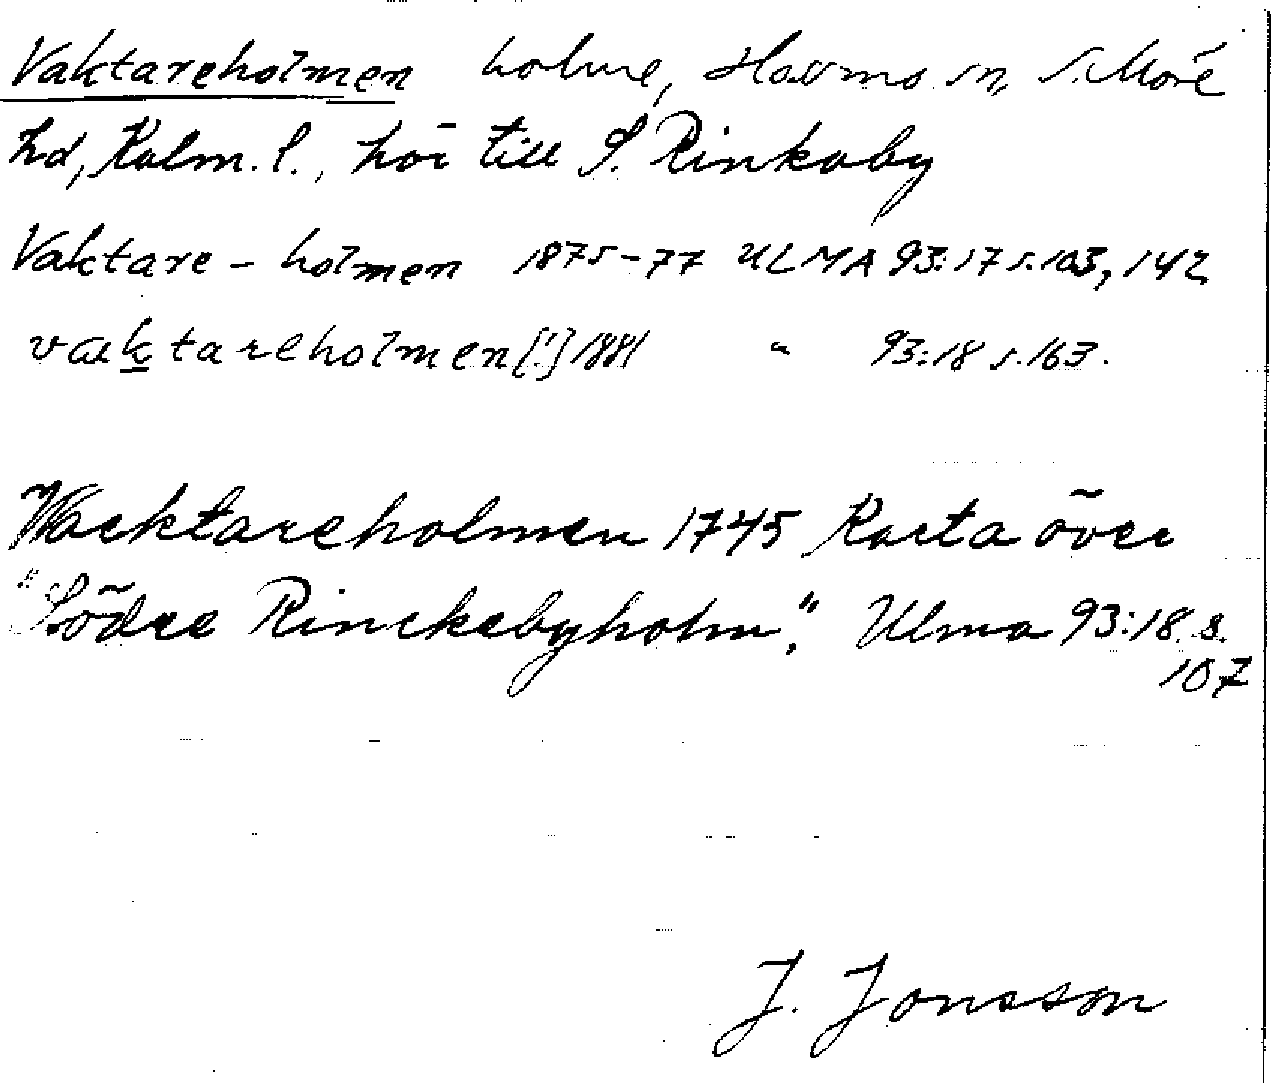 Vaktareholmen holme, Hossmo sn, S. Möre
hd, Kalm. l., hör till S. Rinkaby
Vaktare - holmen 1875-77 ULMA 93:17 s.103, 142
vaktareholmen [!] 1881 " 93:18 s.163.
Wacktareholmen 1745 Karta över
"Södre Rinckebyholm". Ulma 93:18 s.
107
J. Jonsson